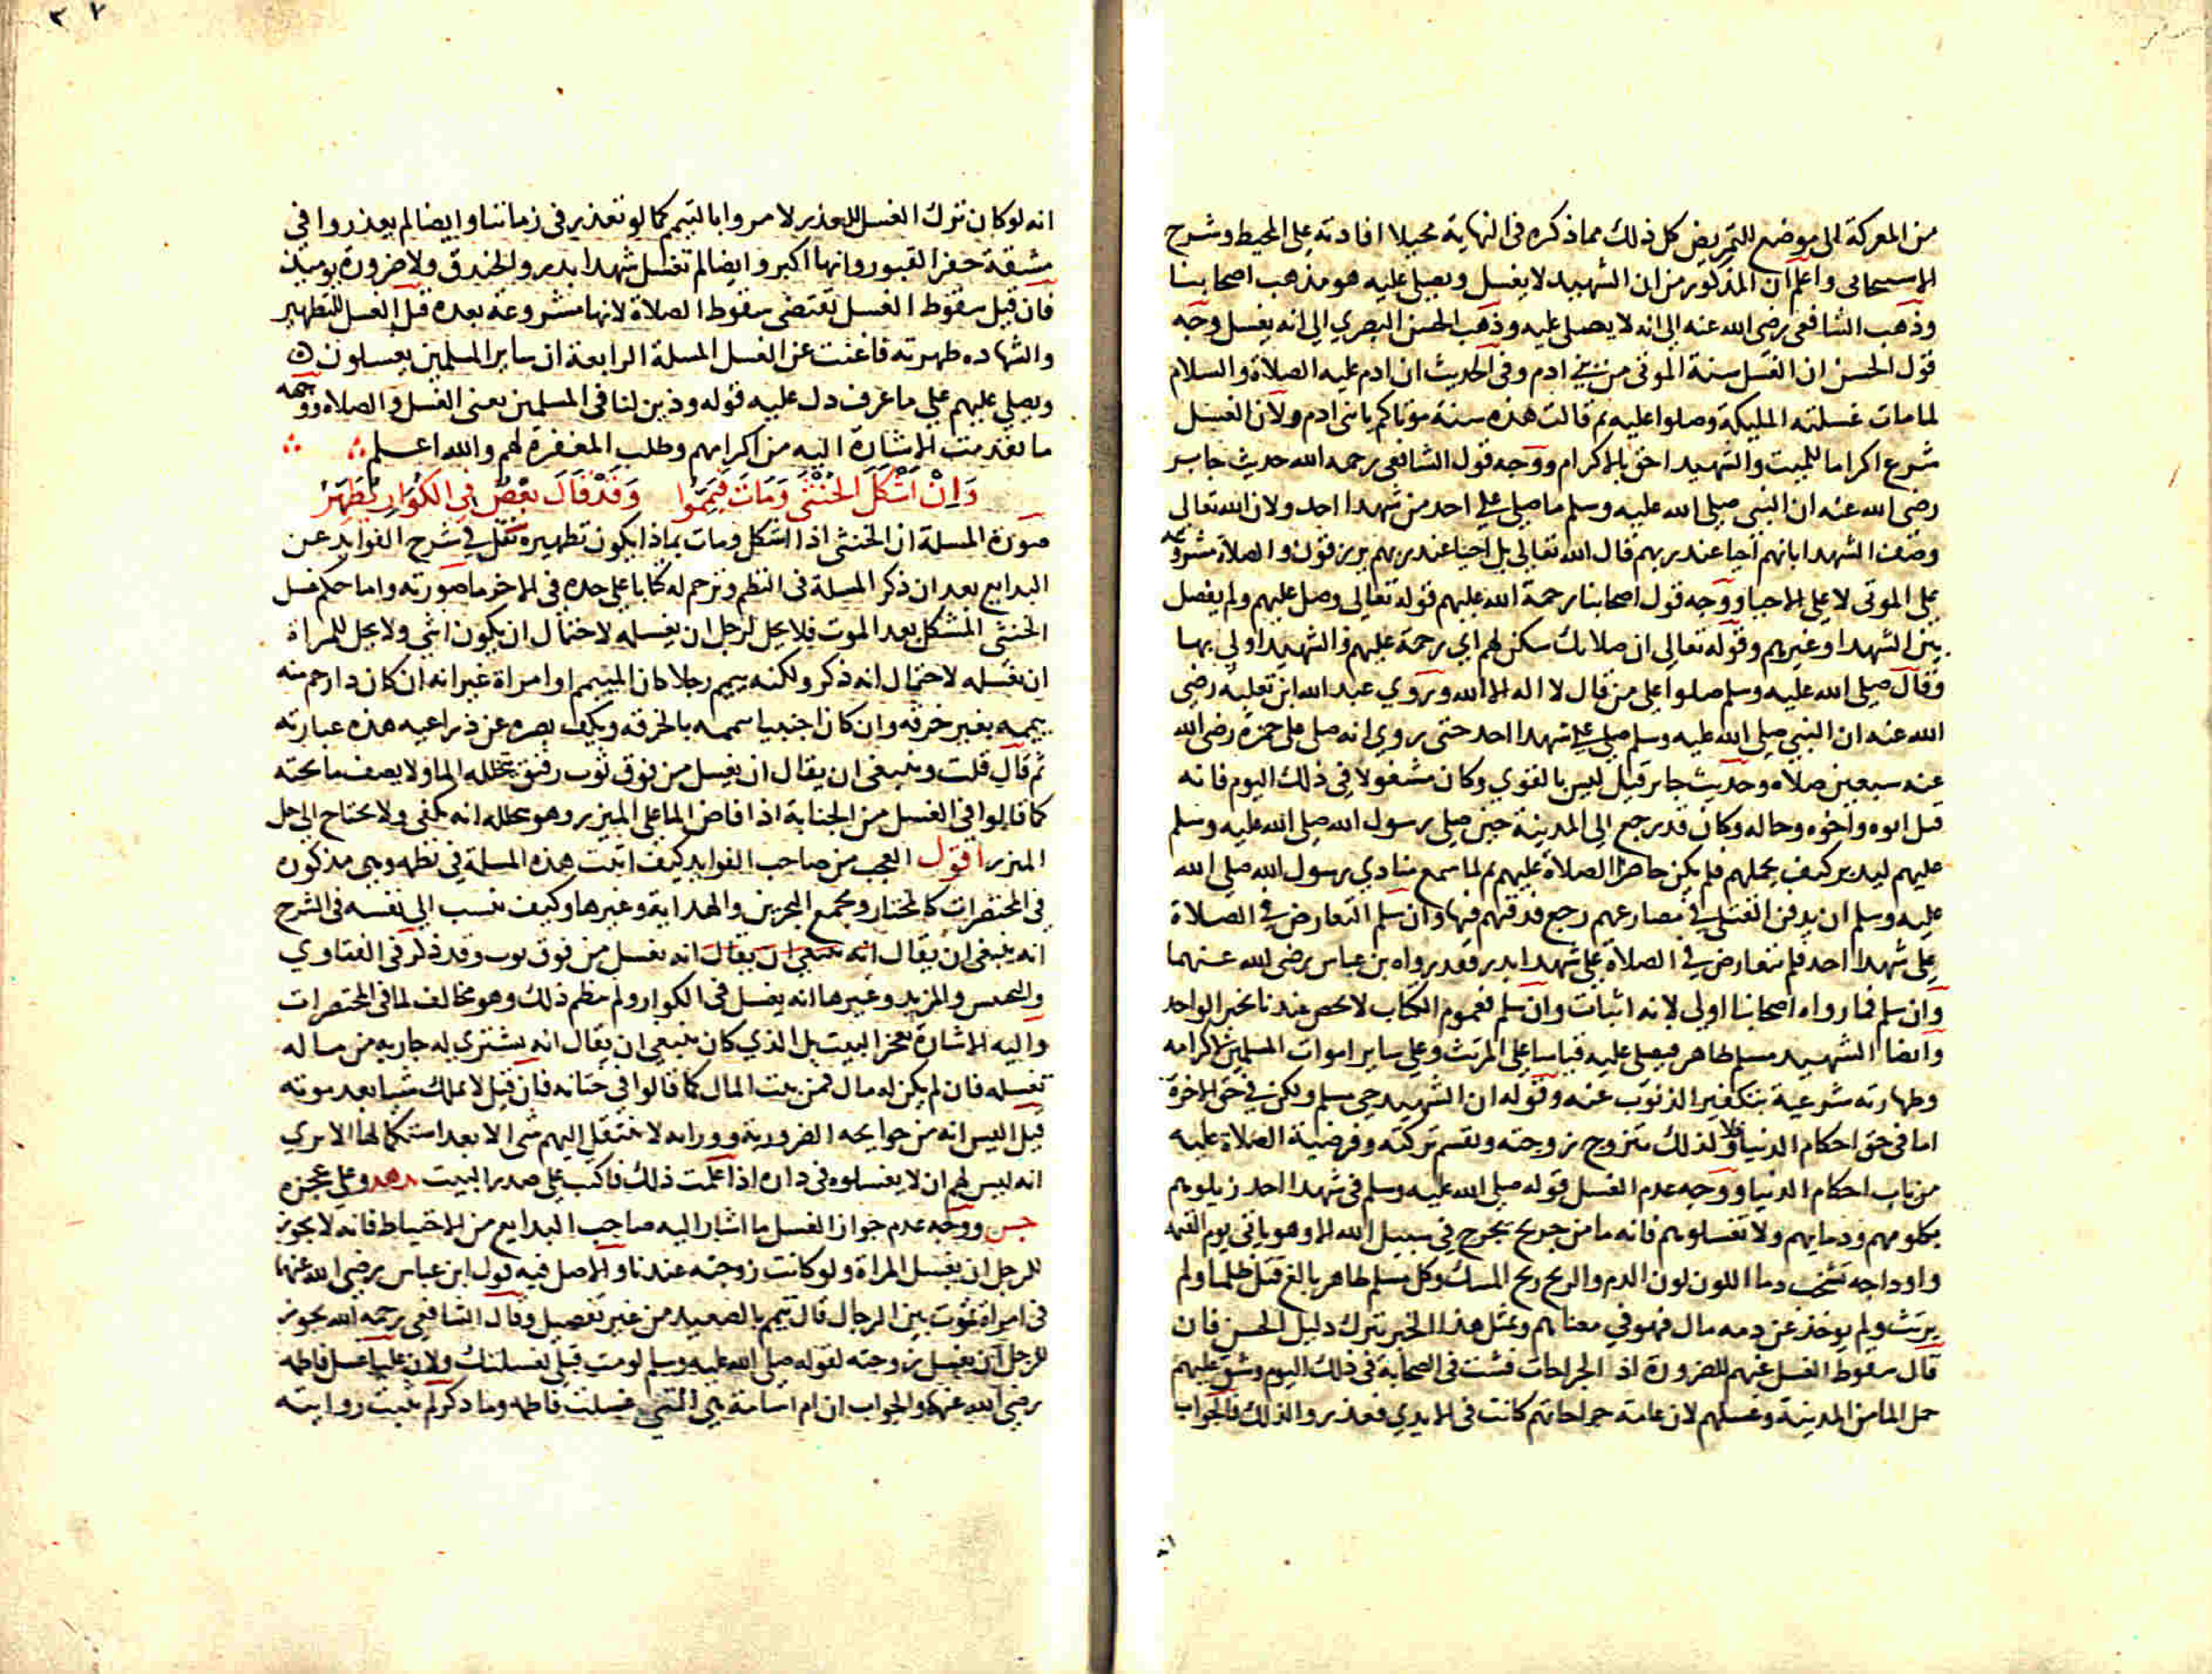 من المعركة الى موضع للتمريض كل ذلك مما ذكره في النهاية محيلا افادته على المحيط وشرح
الاسبيجابي واعلم ان المذكور من ان الشهيد لا يغسل ويصلى عليه هو مذهب اصحابنا
وذهب الشافعي رضي الله عنه الى انه لا يصلى عليه وذهب الحسن البصري الى انه يغسل وجه
قول الحسن ان الغسل سنة الموتى من بني ادم وفي الحديث ان ادم عليه الصلاة والسلام
لما مات غسلته المليكة وصلوا عليه ثم قالت هذه سنة موتاكم يا بني ادم ولان الغسل
شرع اكراما للميت والشهيد احق بالاكرام ووجه قول الشافعي رحمه الله حديث جابر
رضي الله عنه ان النبي صلى الله عليه وسلم ما صلى على احد من شهدا احد ولان الله تعالى
وصف الشهدا بانهم احيا عند ربهم قال الله تعالى بل احيا عند ربهم يرزقون والصلاة مشروعة
على الموتى لا على الاحيا ووجه قول اصحابنا رحمة الله عليهم قوله تعالى وصل عليهم ولم يفصل
بين الشهدا وغيرهم وقوله تعالى ان صلاتك سكن لهم اي رحمة عليهم والشهيد اولى بها
وقال صلى الله عليه وسلم صلوا على من قال لا اله الا الله وروي عبد الله ابن ثعلبه رضي
الله عنه ان النبي صلى الله عليه وسلم صلى على شهدا احد حتى روي انه صلى على حمزة رضي الله
عنه سبعين صلاه وحديث جابر قيل ليس بالقوي وكان مشغولا في ذلك اليوم فانه
قتل ابوه واخوه وخاله وكان قد رجع الى المدينة حين صلى رسول الله صلى الله عليه وسلم
عليهم ليدبر كيف يحملهم فلم يكن حاضرا الصلاة عليهم ثم لما سمع منادي رسول الله صلى الله
عليه وسلم ان يدفن القتلى في مصارعهم رجع فدفنهم فيها وان سلم التعارض في الصلاة
على شهدا احد فلم تتعارض في الصلاة على شهدا بدر فقد رواه بن عباس رضي الله عنهما
وان سلم فما رواه اصحابنا اولى لانه اثبات وان سلم فعموم الكتاب لا يخص عندنا بخبر الواحد
وايضا الشهيد مسلم طاهر فيصلى عليه قياسا على المرتث وعلى ساير اموات المسلمين لاكرامه
وطهارته شرعية بتكفير الذنوب عنه وقوله ان الشهيد حي مسلم ولكن في حق الاخرة
اما في حق احكام الدنيا فلا ولذلك تتزوج زوجته وتقسم تركته وفرضية الصلاة عليه
من باب احكام الدنيا ووجه عدم الغسل قوله صلى الله عليه وسلم في شهدا احد زملوهم
بكلومهم ودمايهم ولا تغسلوهم فانه ما من جريح يجرح في سبيل الله الا وهو ياتي يوم القيمه
واوداجه تشخب دما اللون لون الدم والريح ريح المسك وكل مسلم طاهر بالغ قتل ظلما ولم
يرتث ولم يوخذ عن دمه مال فهو في معناهم وبمثل هذا الخبر يترك دليل الحسن فان
قال سقوط الغسل عنهم للضرورة اذ الجراحات فشت في الصحابة في ذلك اليوم وشق عليهم
حمل الما من المدينة وغسلهم لان عامة جراحاتهم كانت في الايدي فعذروا لذلك فالجواب
انه لو كان ترك الغسل للعذر لامروا بالتيمم كما لو تعذر في زماننا وايضا لم يعذروا في
مشقة حفر القبور وانها اكبر وايضا لم تغسل شهدا بدر والخندق ولا ضرورة يوميذ
فان قيل سقوط الغسل يقتضي سقوط الصلاة لانها مشروعة بعده قيل الغسل للتطهير
والشهاده طهرته فاغنت عن الغسل المسلة الرابعة ان ساير المسلمين يغسلون
ويصلي عليهم على ما عرف دل عليه قوله وذين لنا في المسلمين يعني الغسل والصلاه ووجهه
ما تقدمت الاشارة اليه من اكرامهم وطلب المغفرة لهم والله اعلم
وَاِنْ اَشْكَلَ الخُنْثَى وَمَاتَ فَيَمِّمُوا وَقَدْ قَالَ بَعْضٌ في الكُوَارِ يُطَهَّرُ
صورة المسلة ان الخنثى اذا اشكل ومات بماذا يكون تطهيره نقل في شرح الفوايد عن
البدايع بعد ان ذكر المسلة في النظم وترجم له كتابا على حده في الاخر ما صورته واما حكم غسل
الخنثى المشكل بعد الموت فلا يحل لرجل ان يغسله لاحتمال ان يكون انثى ولا يحل للمراة
ان تغسله لاحتمال انه ذكر ولكنه ييمم رجلا كان الميمم او امراة غير انه ان كان ذا رحم منه
ييممه بغير خرقه وان كان اجنبيا يممه بالخرقه ويكف بصره عن ذراعيه هذه عبارته
ثم قال قلت وينبغي ان يقال ان يغسل من فوق ثوب رقيق يتخلله الما ولا يصف ما تحته
كما قالوا في الغسل من الجنابة اذا افاض الما على الميزر وهو يتخلله انه يكفي ولا يحتاج الى حل
الميزر اقول العجب من صاحب الفوايد كيف اثبت هذه المسلة في نظمه وهي مذكوره
في المختصرات كالمختار ومجمع البحرين والهداية وغيرها وكيف نسب الى نفسه في الشرح
انه ينبغي ان يقال انه ينبغي ان يقال انه يغسل من فوق ثوب وقد ذكر في الفتاوي
والتجنيس والمزيد وغيرها انه يغسل في الكوار ولم ينظم ذلك وهو مخالف لما في المختصرات
واليه الاشارة بعجز البيت بل الذي كان ينبغي ان يقال انه يشتري له جاريه من ماله
تغسله فان لم يكن له مال فمن بيت المال كما قالوا في ختانه فان قيل لا يملك شيا بعد موته
قيل اليس انه من حوايجه الضرورية ووراثه لا ينتقل اليهم شي الا بعد استكمالها الا تري
انه ليس لهم ان لا يغسلوه في داره اذا علمت ذلك فاكتب على صدر البيت وعلى عجزه
ووجه عدم جواز الغسل ما اشار اليه صاحب البدايع من الاحتياط فانه لا يجوز
للرجل ان يغسل المراة ولو كانت زوجته عندنا والاصل فيه قول ابن عباس رضي الله عنهما
في امراة تموت بين الرجال قال تيمم بالصعيد من غير تفصيل وقال الشافعي رحمه الله يجوز
للرجل ان يغسل زوجته لقوله صلى الله عليه وسلم لو مت قبلي لغسلتك ولان عليا غسل فاطمه
رضي الله عنهما والجواب ان ام اسامة هي التي غسلت فاطمه وما ذكر لم يثبت روايته